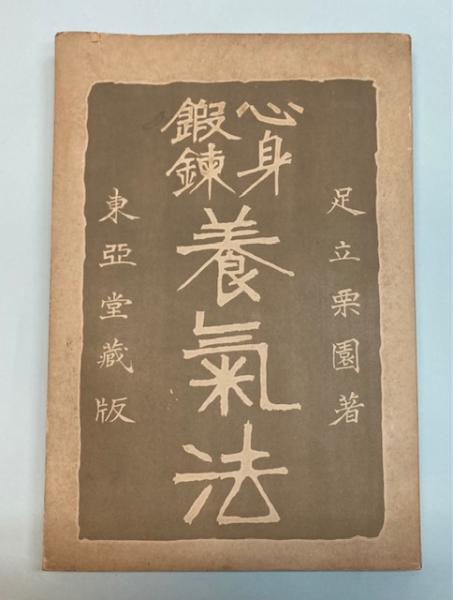 足立栗園著
心身
鍛鍊
養氣法
東亞堂藏版